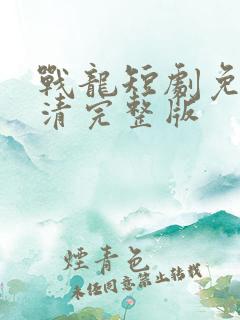 戰龍短劇免
清完整版
煙青色
未經同意禁止轉載